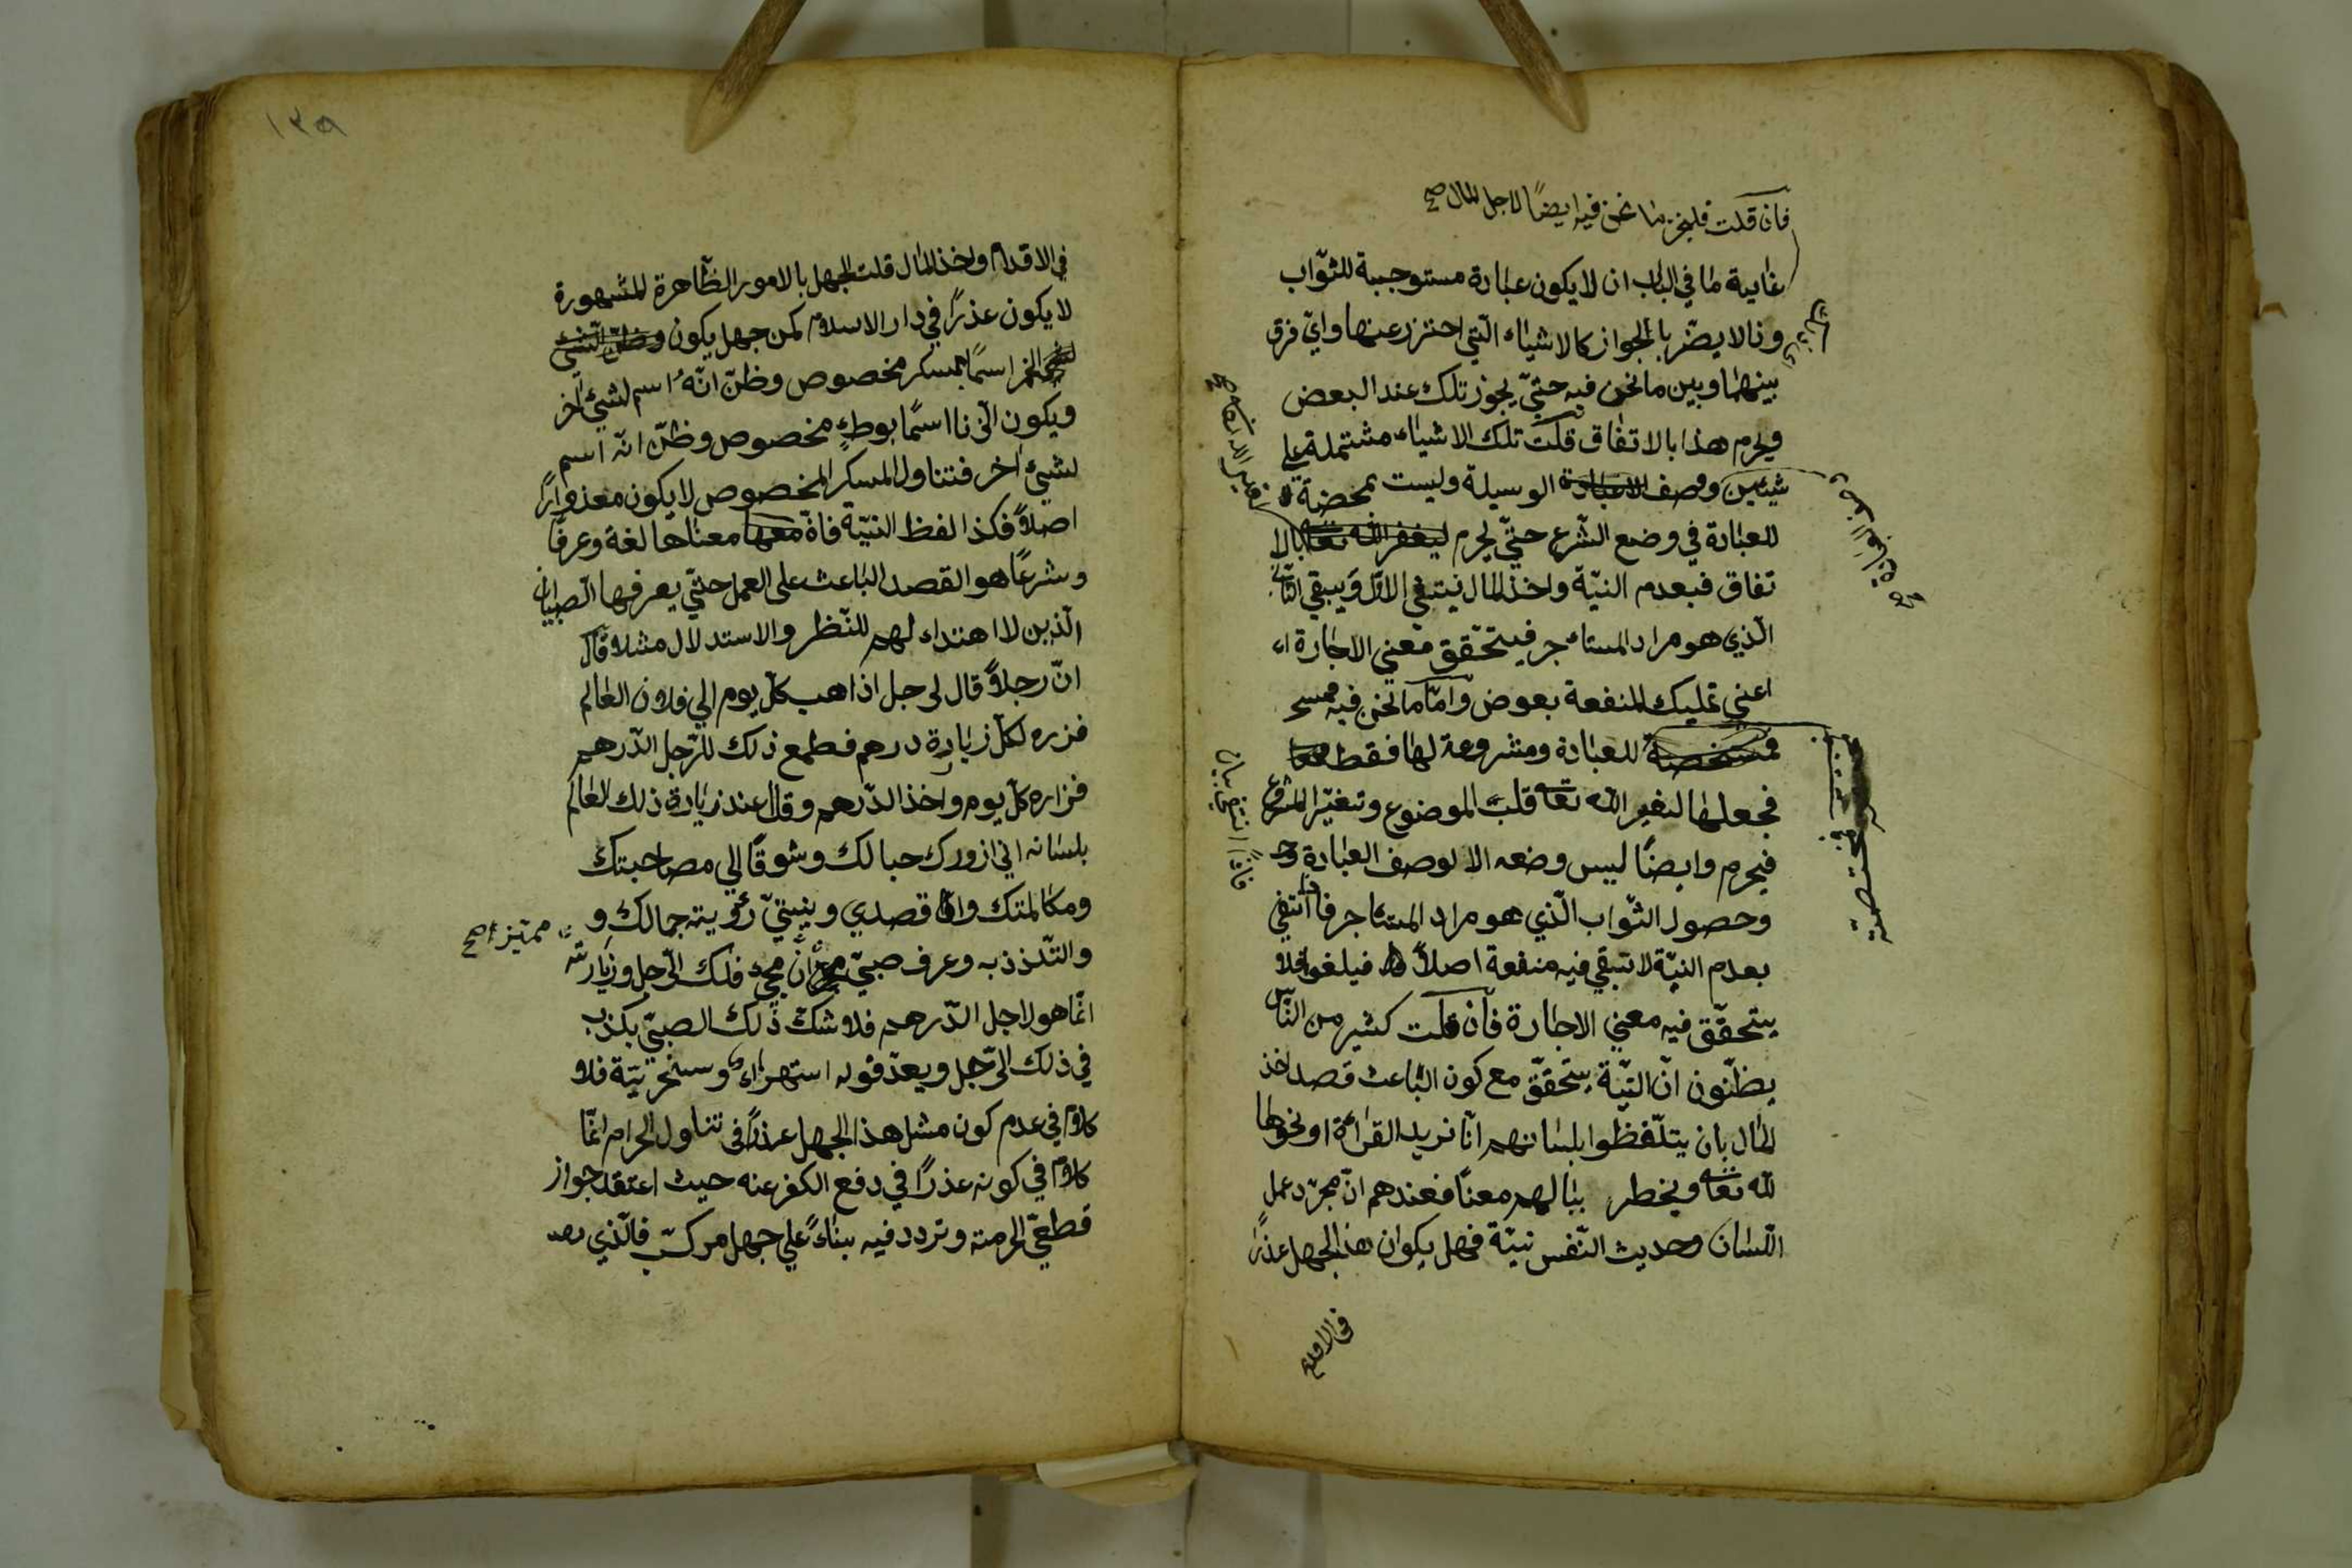 فان قلت فليجز ما نحن فيه ايضًا لاجل المال صح
غاية ما في الباب ان لا يكون عبادة مستوجبة للثواب
وذا لا يضر بالجواز كالاشياء التي احترز عنها واي فرق
بينهما وبين ما نحن فيه حتي يجوز تلك عند البعض
ويحرم هذا بالاتفاق قلت تلك الاشياء مشتملة علي
شيئين وصف العبادة الوسيلة وليست بمخضة
للعبادة في وضع الشرع حتي يحرم لغير الله تعا بالا
تفاق فبعدم النية واخذ المال ينتفي الاول ويبقي الثاني
الذي هو مراد المستاءجر فيتحقق معني الاجارة اء
اعني تمليك المنفعة بعوض واما ما نحن فيه
للعبادة ومشروعة لها فقط
فجعلها لغير الله تعا قلب الموضوع وتغير المشروع
فيحرم وايضًا ليس وضعه الا لوصف العبادة وحـ
وحصول الثواب الذي هو مراد المستاجر فاذا انتفي
بعدم النية لا تبقي فيه منفعة اصلاً فيلغو فلا
يتحقق فيه معني الاجارة فان قلت كثير من الناس
يظنون ان النية يتحقق مع كون الباعث قصد اخذ
المال بان يتلفظوا بلسانهم انا نريد القراءة او نحوها
لله تعا ويخطر ببالهم معنا فعندهم ان مجرد عمل
اللسان وحديث النفس نية فهل يكوان هذا الجهل عذرًا
في الاقدام
مختصة
في الاقدام واخذ المال قلت الجهل بالامور الظاهرة المشهورة
لا يكون عذرًا في دار الاسلام كمن جهل يكون وظن الشئ
الخمر اسمًا بمسكر مخصوص وظن انه اسم لشيئ اخر
ويكون الزنا اسمًا بوطء مخصوص وظن انه اسم
لشيئ اخر فتناول المسكر المخصوص لا يكون معذوارًا
اصلاً فكذا لفظ النية فان معها معناها لغة وعرفًا
وشرعًا هو القصد الباعث على العمل حتي يعرفها الصبيان
الذين لا اهتداء لهم للنظر والاستدلال مثلا قال
ان رجلاً قال لرجل اذاهب كل يوم الي فلان العالم
فزره لكل زيارة درهم فطمع ذلك الرجل الدرهم
فزاره كل يوم واخذ الدرهم وقال عند زيارة ذلك العالم
بلسانه اني ازورك حبا لك وشوقًا الي مصاحبتك
ومكالمتك وانما قصدي وبنيتي رؤيته جمالك و
والتلذذ به وعرف صبي ان مجيء ذلك الرجل وزيارته
مميز صح
انما هو لاجل الدرهم فلا شك ذلك الصبي بكذب
في ذلك الرجل ويعد قوله استهزاء وسخرية فلا
كلام في عدم كون مثل هذا الجهل عذرًا في تناول الحرام انما
كلام في كونه عذرًا في دفع الكفر عنه حيث اعتقد جواز
قطعي الحرمته وتردد فيه بناءً علي جهل مركب فالذي
١٣٩